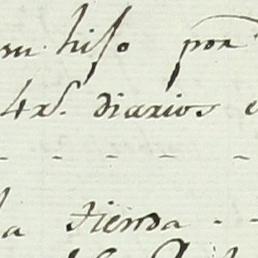 su hijo por
4 rs. diarios
la tienda